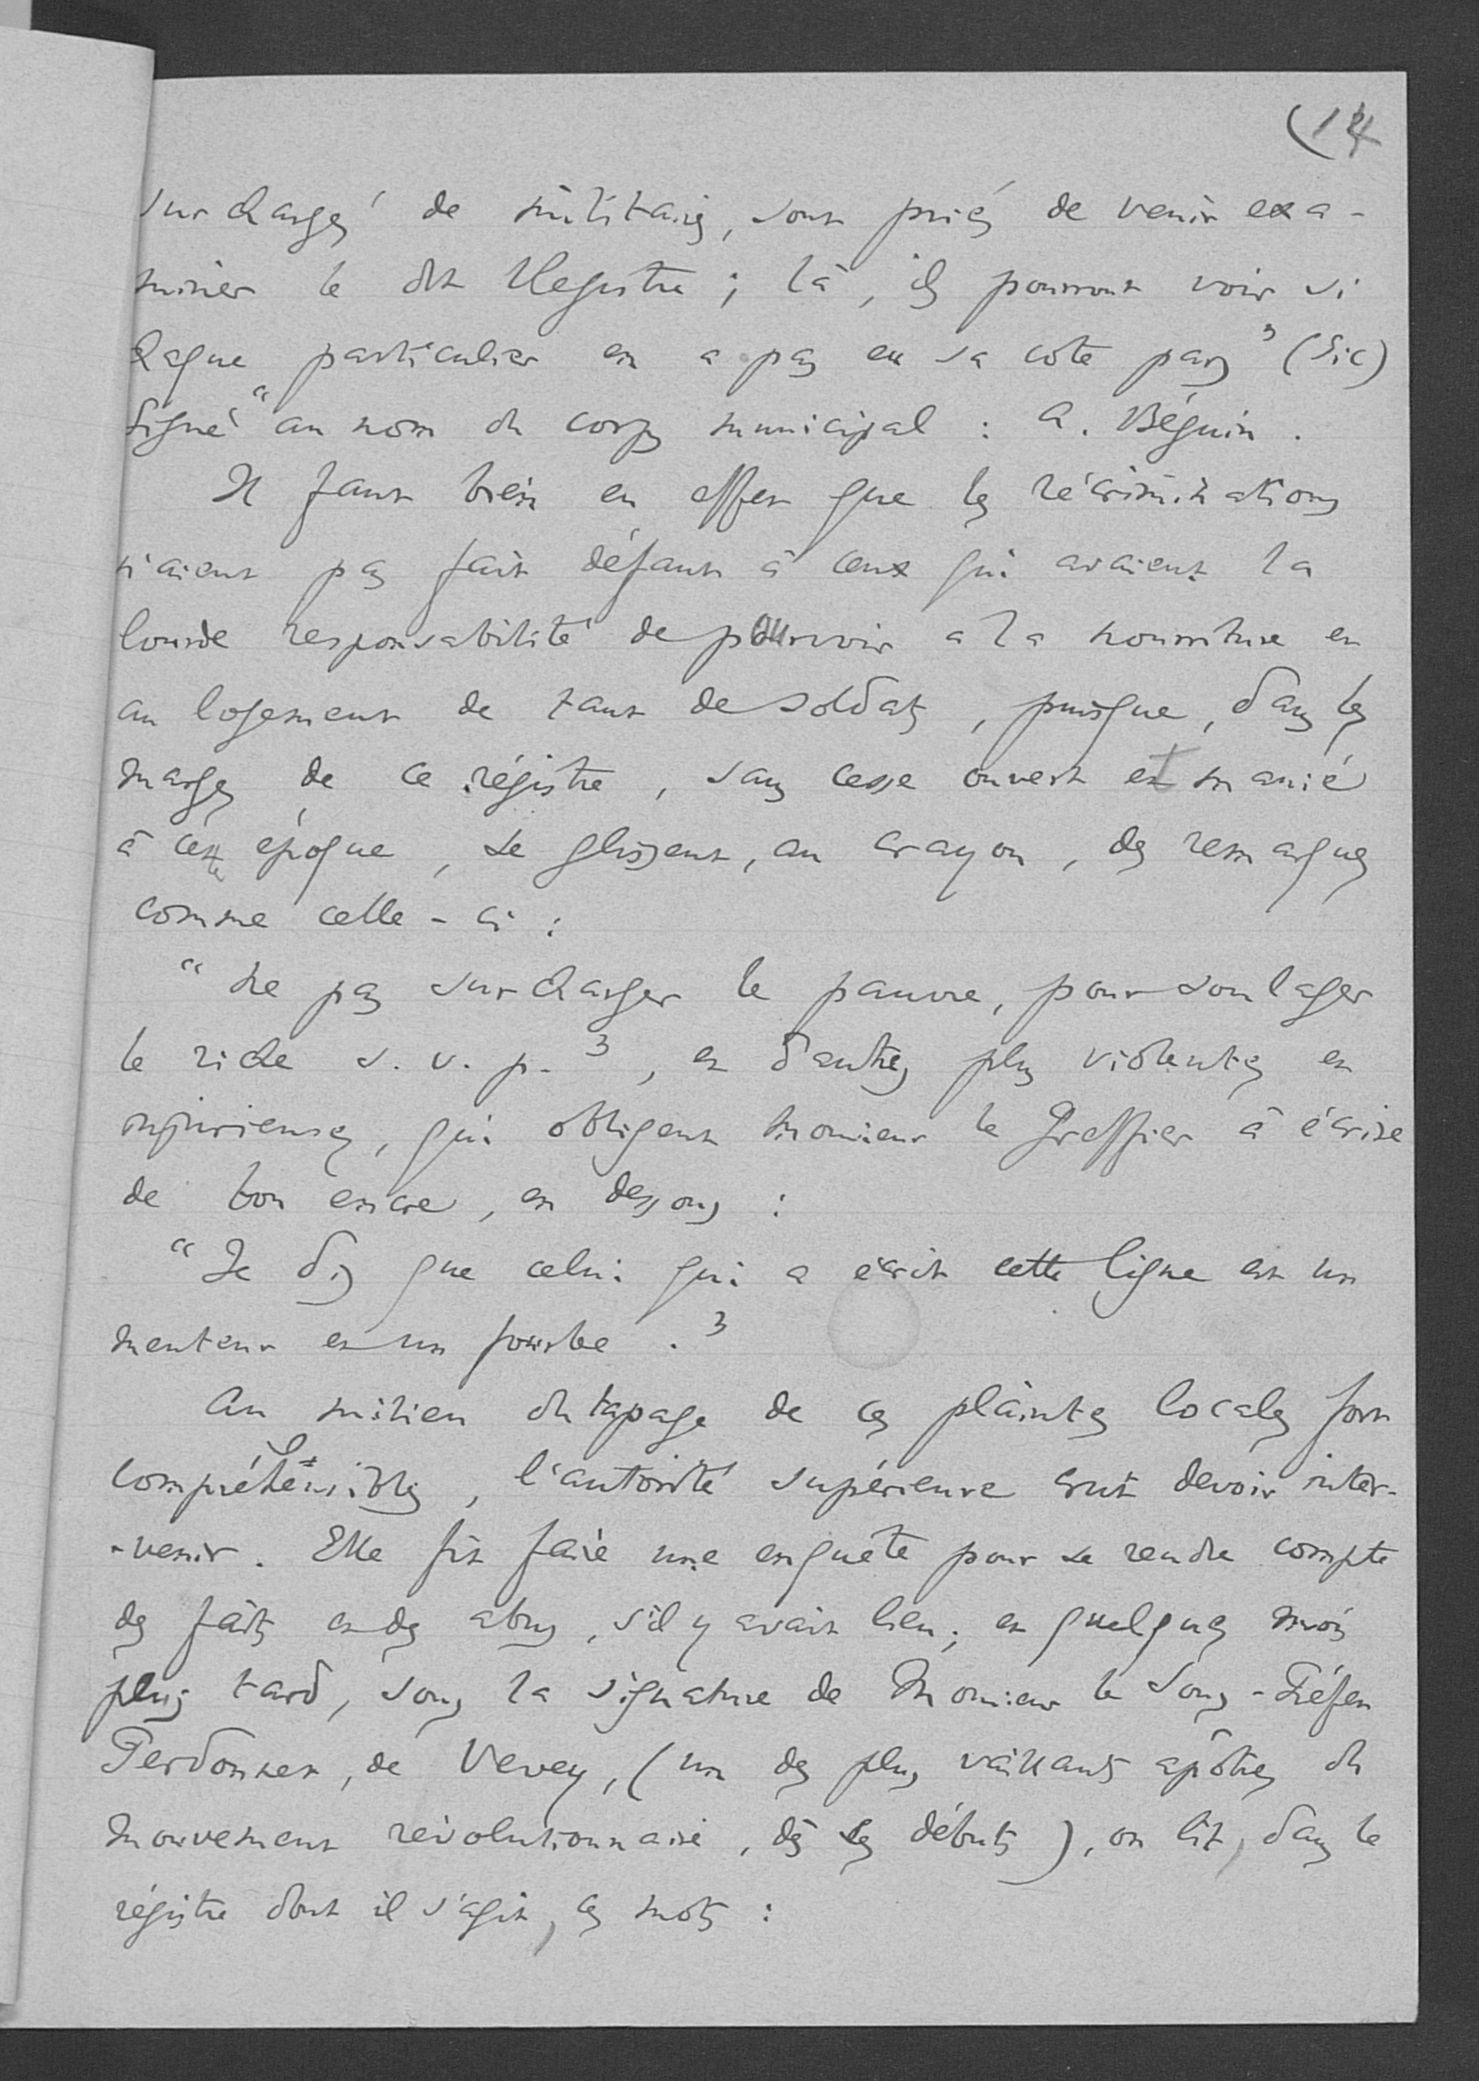 (14
surchargés de militaires, sont priés de venir exa-
miner le dit Registre ; là, ils pourront voir si
chaque particulier en a pas eu sa cote pars" (sic)
signé "au nom du corps municipal : A. Béguin.
Il faut bien en effet que les récriminations
n'aient pas fait défaut à ceux qui avaient la
lourde responsabilité de pourvoir a la nourriture et
au logement de tant de soldats, puisque, dans les
marges de ce régistre, sans cesse ouvert et manié
à cette époque, se glissent, au crayon, des remarques
comme celle-ci :
"Ne pas surcharger le pauvre, pour soulager
le riche s.v.p.", et d'autres plus violentes et
injurieuses, qui obligent Monsieur le Greffier à écrire
de bon encre, en dessous :
"Je dis que celui qui a écrit cette ligne est un
menteur et un fourbe."
Au milieu du tapage de ces plaintes locales fort
compréhensibles, l'autorité supérieure crut devoir inter-
-venir. Elle fit faire une enquête pour se rendre compte
des faits et des abus, s'il y avait lieu; et quelques mois
plus tard, sous la signature de Monsieur le Sous-Préfet
Perdonnet, de Vevey, (un des plus vaillants apôtres du
mouvement révolutionnaire, dès les débuts), on lit, dans le
régistre dont il s'agit, ces mots :